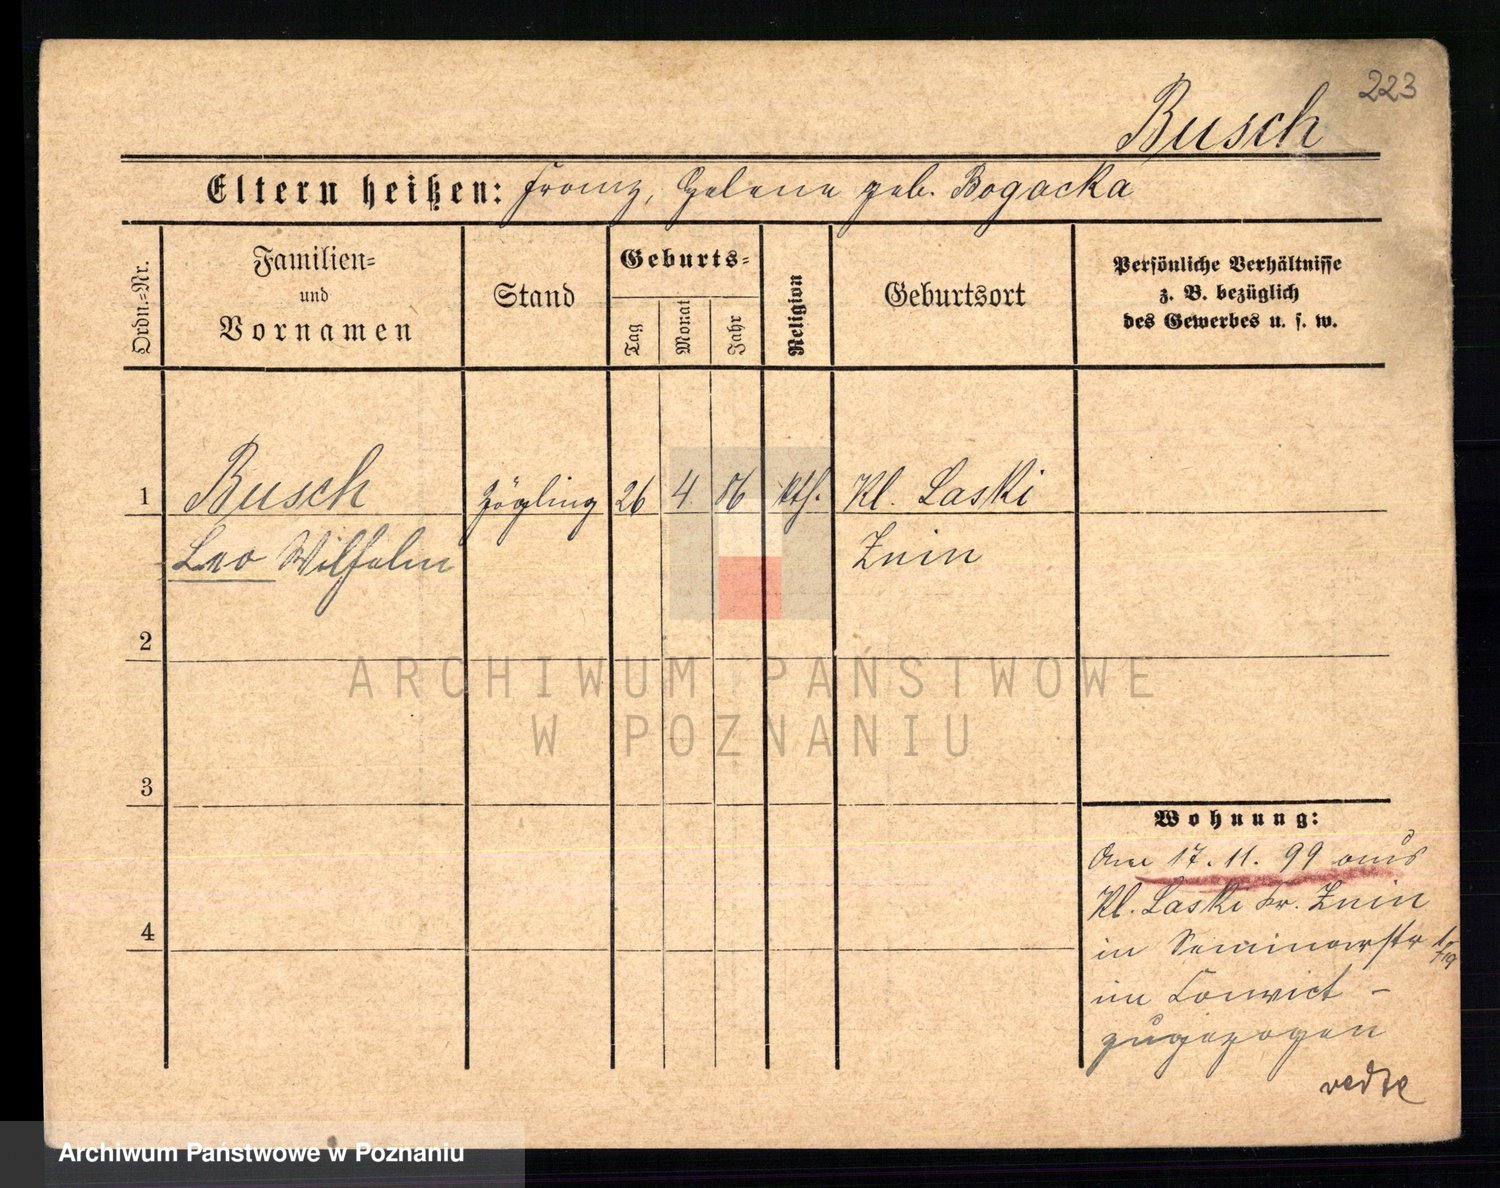 223
Busch
Eltern heißen: Franz, Helene geb. Bogacka
Ordn.=Nr.
Familien=
und
Vornamen
Stand
Geburts=
Tag
Monat
Jahr
Religion
Geburtsort
Persönliche Verhältnisse
z. B. bezüglich
des Gewerbes u. s. w.
1 Busch Zögling 26 4 86 kth. Kl. Laski
Leo Wilhelm Znin
2
3
4
Wohnung:
Am 17. 11. 99 aus
Kl. Laski Kr. Znin
in Seminarstr
im Convict –
zugezogen
ARCHIWUM PAŃSTWOWE
W POZNANIU
Archiwum Państwowe w Poznaniu